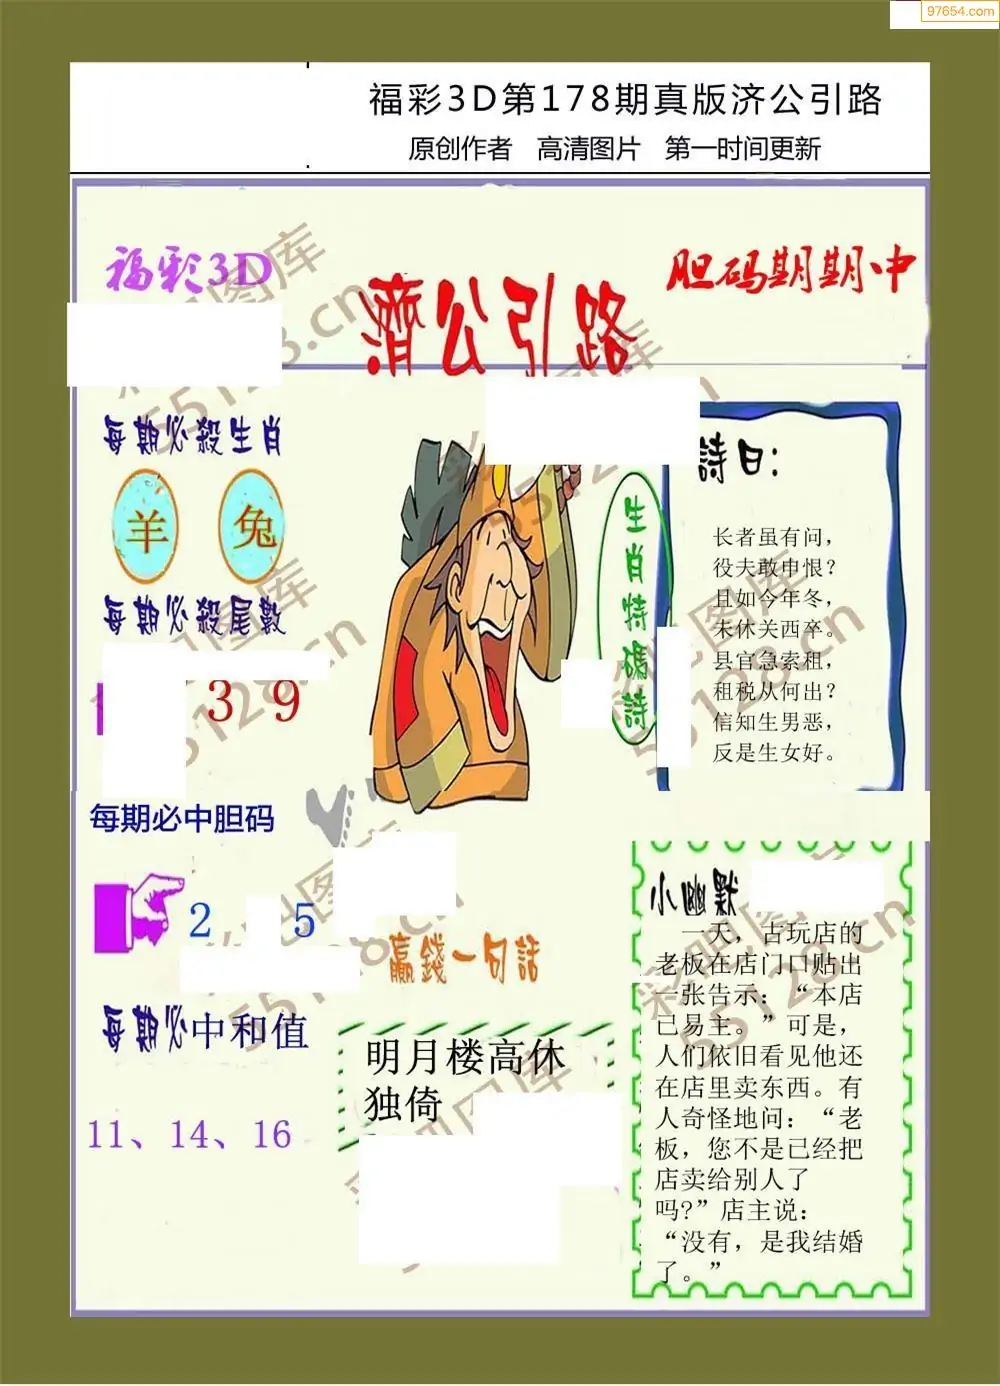 97654.com
福彩3D第178期真版济公引路
原创作者 高清图片 第一时间更新
福彩3D
胆码期期中
濟公引路
每期必殺生肖
羊 兔
每期必殺尾數
3 9
每期必中胆码
2 5
每期必中和值
11、14、16
生肖特碼詩
詩曰:
长者虽有问，
役夫敢申恨？
且如今年冬，
未休关西卒。
县官急索租，
租税从何出？
信知生男恶，
反是生女好。
赢錢一句話
明月楼高休
独倚
小幽默
一天，古玩店的
老板在店门口贴出
一张告示：“本店
已易主。”可是，
人们依旧看见他还
在店里卖东西。有
人奇怪地问：“老
板，您不是已经把
店卖给别人了
吗?”店主说：
“没有，是我结婚
了。”
彩吧图库
55128.cn